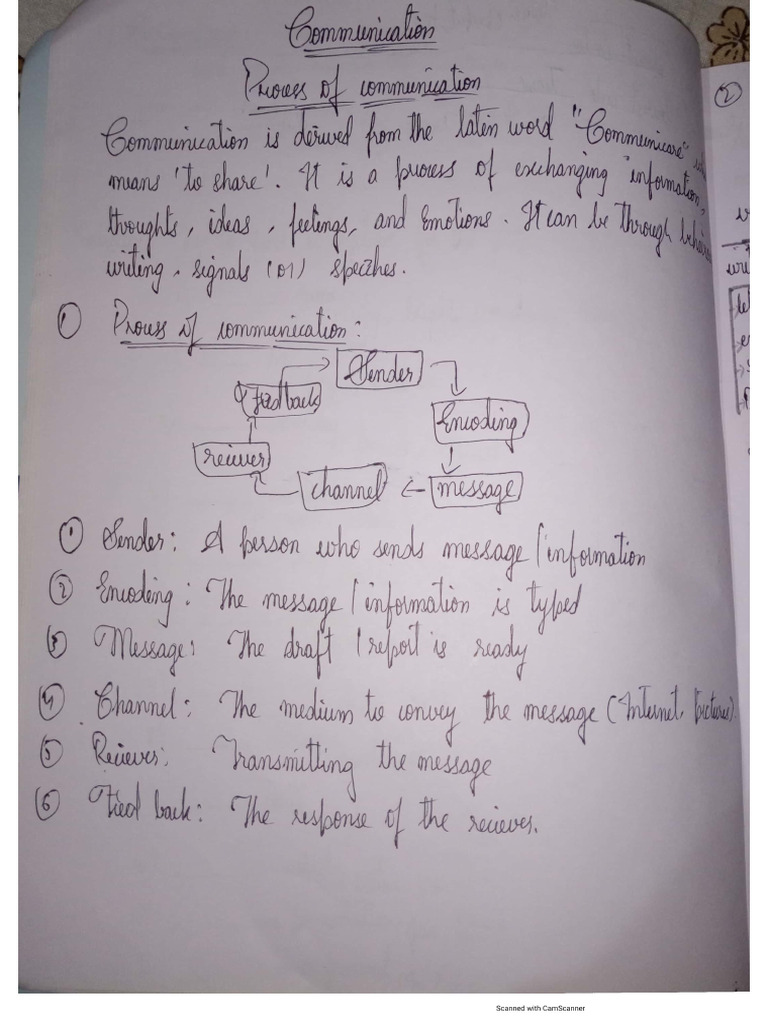 Communication
Process of communication
Communication is derived from the laten word "Communicare"
means 'to share'. It is a process of exchanging information,
thoughts, ideas, feelings, and emotions. It can be through
writing, signals (or) speeches.
① Process of communication:
Sender
feedback
Encoding
reciever
channel
message
① Sender: A person who sends message/information
② Encoding: The message/information is typed
③ Message: The draft/report is ready
④ Channel: The medium to convey the message (Internet, Pictures).
⑤ Reciever: Transmitting the message
⑥ Fied back: The response of the reciever.
②
Scanned with CamScanner